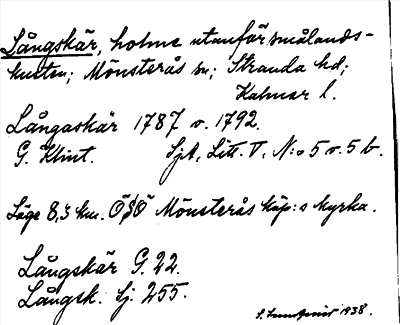 Långskär, holme utanför smålands-
kusten; Mönsterås sn; Stranda hd;
Kalmar l.
Långaskär 1787 o. 1792.
G. Klint. Sjk, Litt. V, N:o 5 o. 5 b.
Läge 8,3 km. ÖSÖ Mönsterås köp:s kyrka.
Långskär G. 22.
Långsk. Sj. 255.
1938.